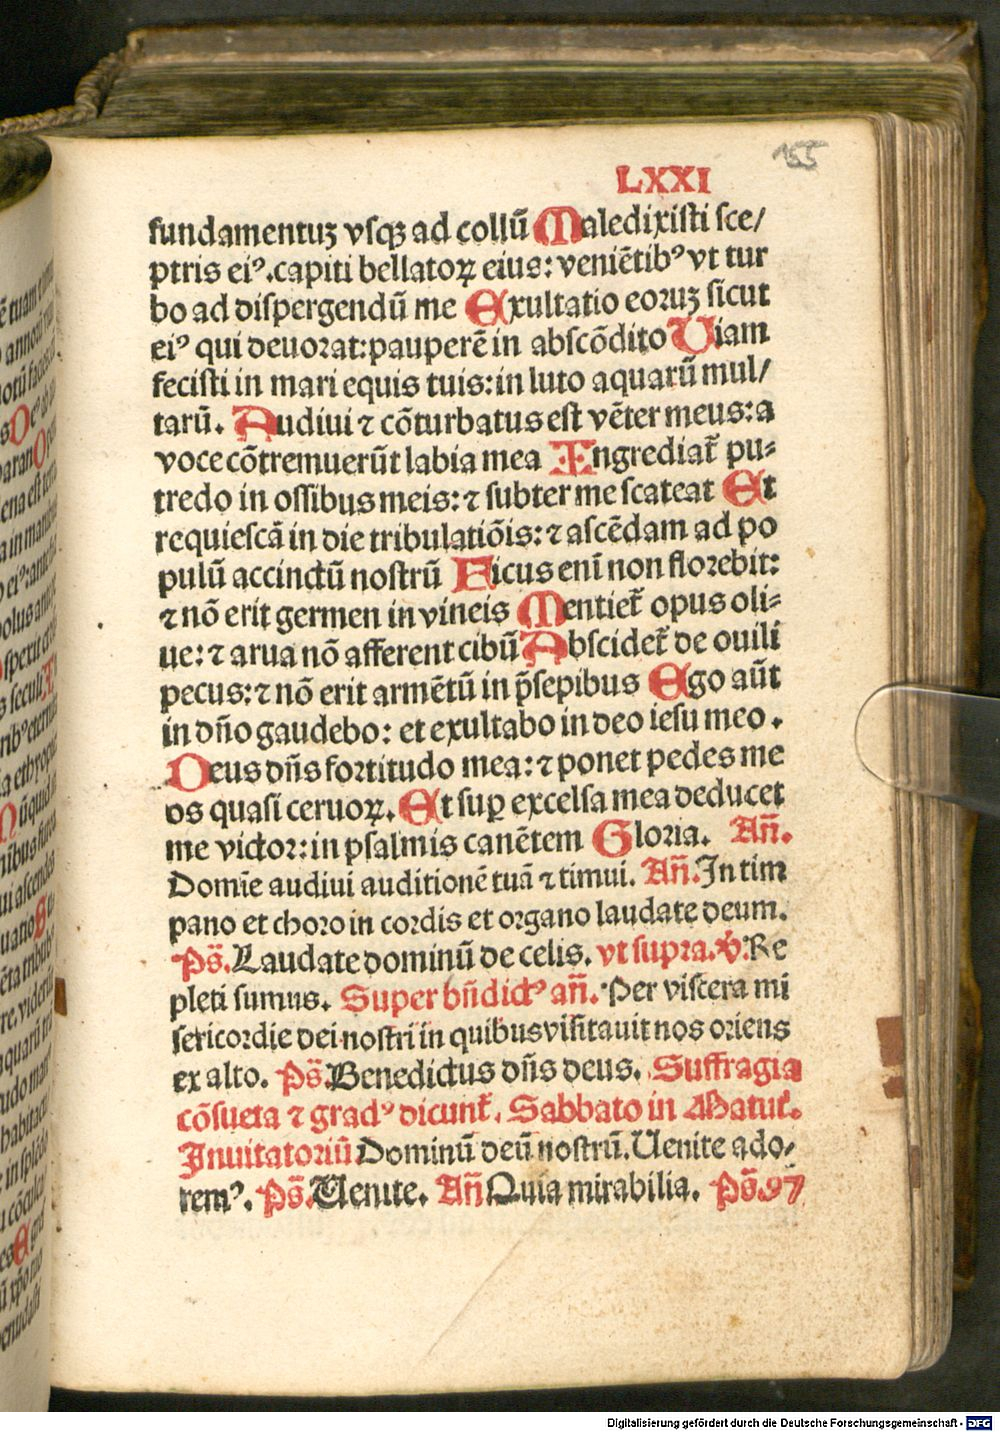 155
LXXI
fundamentuꝫ vſqꝫ ad collū Maledixiſti ſce/
ptris eiꝰ.capiti bellatoꝝ eius: veniētibꝰ vt tur
bo ad diſpergendū me Exultatio eoruꝫ ſicut
eiꝰ qui deuorat:pauperē in abſcōdito Uiam
feciſti in mari equis tuis:in luto aquarū mul/
tarū. Audiui ⁊ cōturbatus eſt vēter meus: a
voce cōtremuerūt labia mea Ingrediat᷑ pu⸗
tredo in oſſibus meis: ⁊ ſubter me ſcateat Et
requieſcā in die tribulatiōis: ⁊ aſcēdam ad po
pulū accinctū noſtrū Ficus eni̅ non florebit:
⁊ nō erit germen in vineis Mentiet᷑ opus oli⸗
ue: ⁊ arua nō afferent cibū Abſcidet᷑ de ouili
pecus: ⁊ nō erit armētū in p̄ſepibus Ego aūt
in dn̄o gaudebo: et exultabo in deo ieſu meo.
Deus dn̄s fortitudo mea: ⁊ ponet pedes me
os quaſi ceruoꝝ. Et ſuꝑ excelſa mea deducet
me victor: in pſalmis canētem Gloria. Añ.
Domi̅e audiui auditionē tuā ⁊ timui. Añ. In tim
pano et choro in cordis et organo laudate deum.
Ps̄. Laudate dominū de celis. vt supra. ℣. Re
pleti ſumus. Super bn̄dictꝰ añ. Per viſcera mi
ſericordie dei noſtri in quibus viſitauit nos oriens
ex alto. Ps̄. Benedictus dn̄s deus. Suffragia
cōſueta ⁊ gradꝰ dicunt᷑. Sabbato in Matut̉.
Inuitatoriū Dominū deū noſtrū. Uenite ado⸗
remꝰ. Ps̄. Uenite. Añ Quia mirabilia. Ps̄. 97
Digitalisierung gefördert durch die Deutsche Forschungsgemeinschaft - DFG